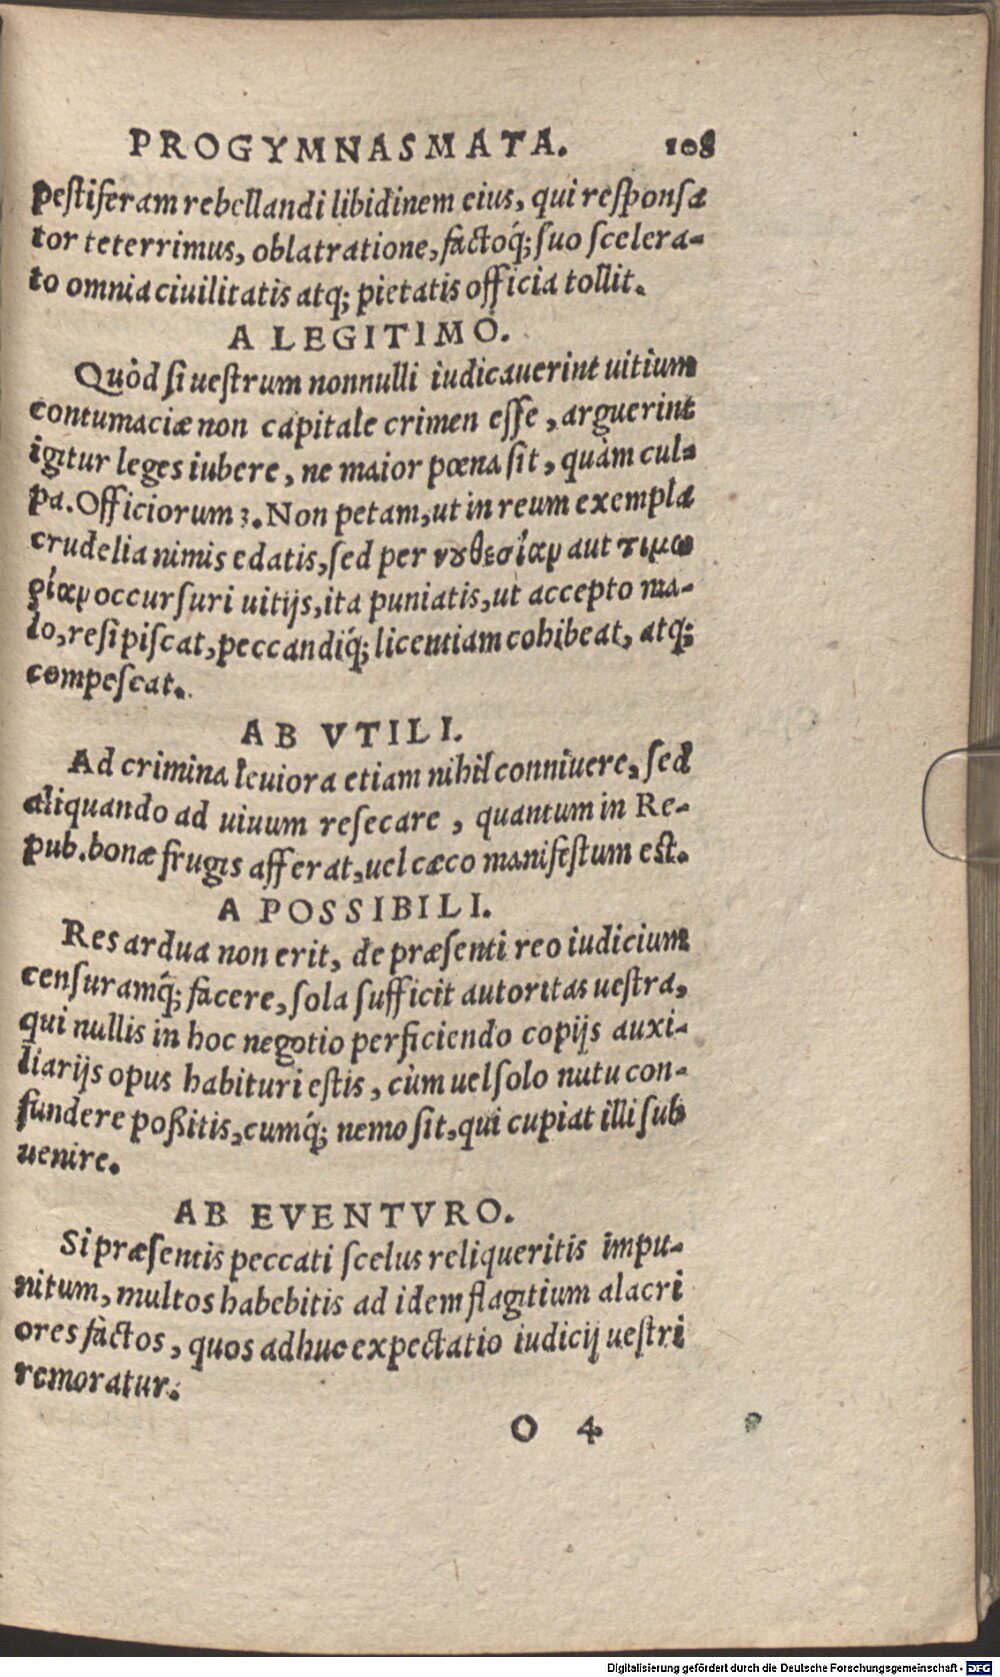 PROGYMNASMATA. 108
pestiferam rebellandi libidinem eius, qui responsa
tor teterrimus, oblatratione, factoq́; suo scelera-
to omnia ciuilitatis atq; pietatis officia tollit.
A LEGITIMO.
Quòd si uestrum nonnulli iudicauerint uitium
contumaciæ non capitale crimen esse, arguerint
igitur leges iubere, ne maior pœna sit, quàm cul-
pa. Officiorum 3. Non petam, ut in reum exempla
crudelia nimis edatis, sed per νουθεσίαν aut τιμω
ρίαν occursuri uitijs, ita puniatis, ut accepto ma-
lo, resipiscat, peccandiq́; licentiam cohibeat, atq;
compescat.
AB VTILI.
Ad crimina leuiora etiam nihil conniuere, sed
aliquando ad uiuum resecare, quantum in Re-
pub. bonæ frugis afferat, uel cæco manifestum est.
A POSSIBILI.
Res ardua non erit, de præsenti reo iudicium
censuramq́; facere, sola sufficit autoritas uestra,
qui nullis in hoc negotio perficiendo copijs auxi-
liarijs opus habituri estis, cùm uel solo nutu con-
fundere poßitis, cumq́; nemo sit, qui cupiat illi sub
uenire.
AB EVENTVRO.
Si præsentis peccati scelus reliqueritis impu-
nitum, multos habebitis ad idem flagitium alacri
ores factos, quos adhuc expectatio iudicij uestri
remoratur.
O 4
Digitalisierung gefördert durch die Deutsche Forschungsgemeinschaft - DFG